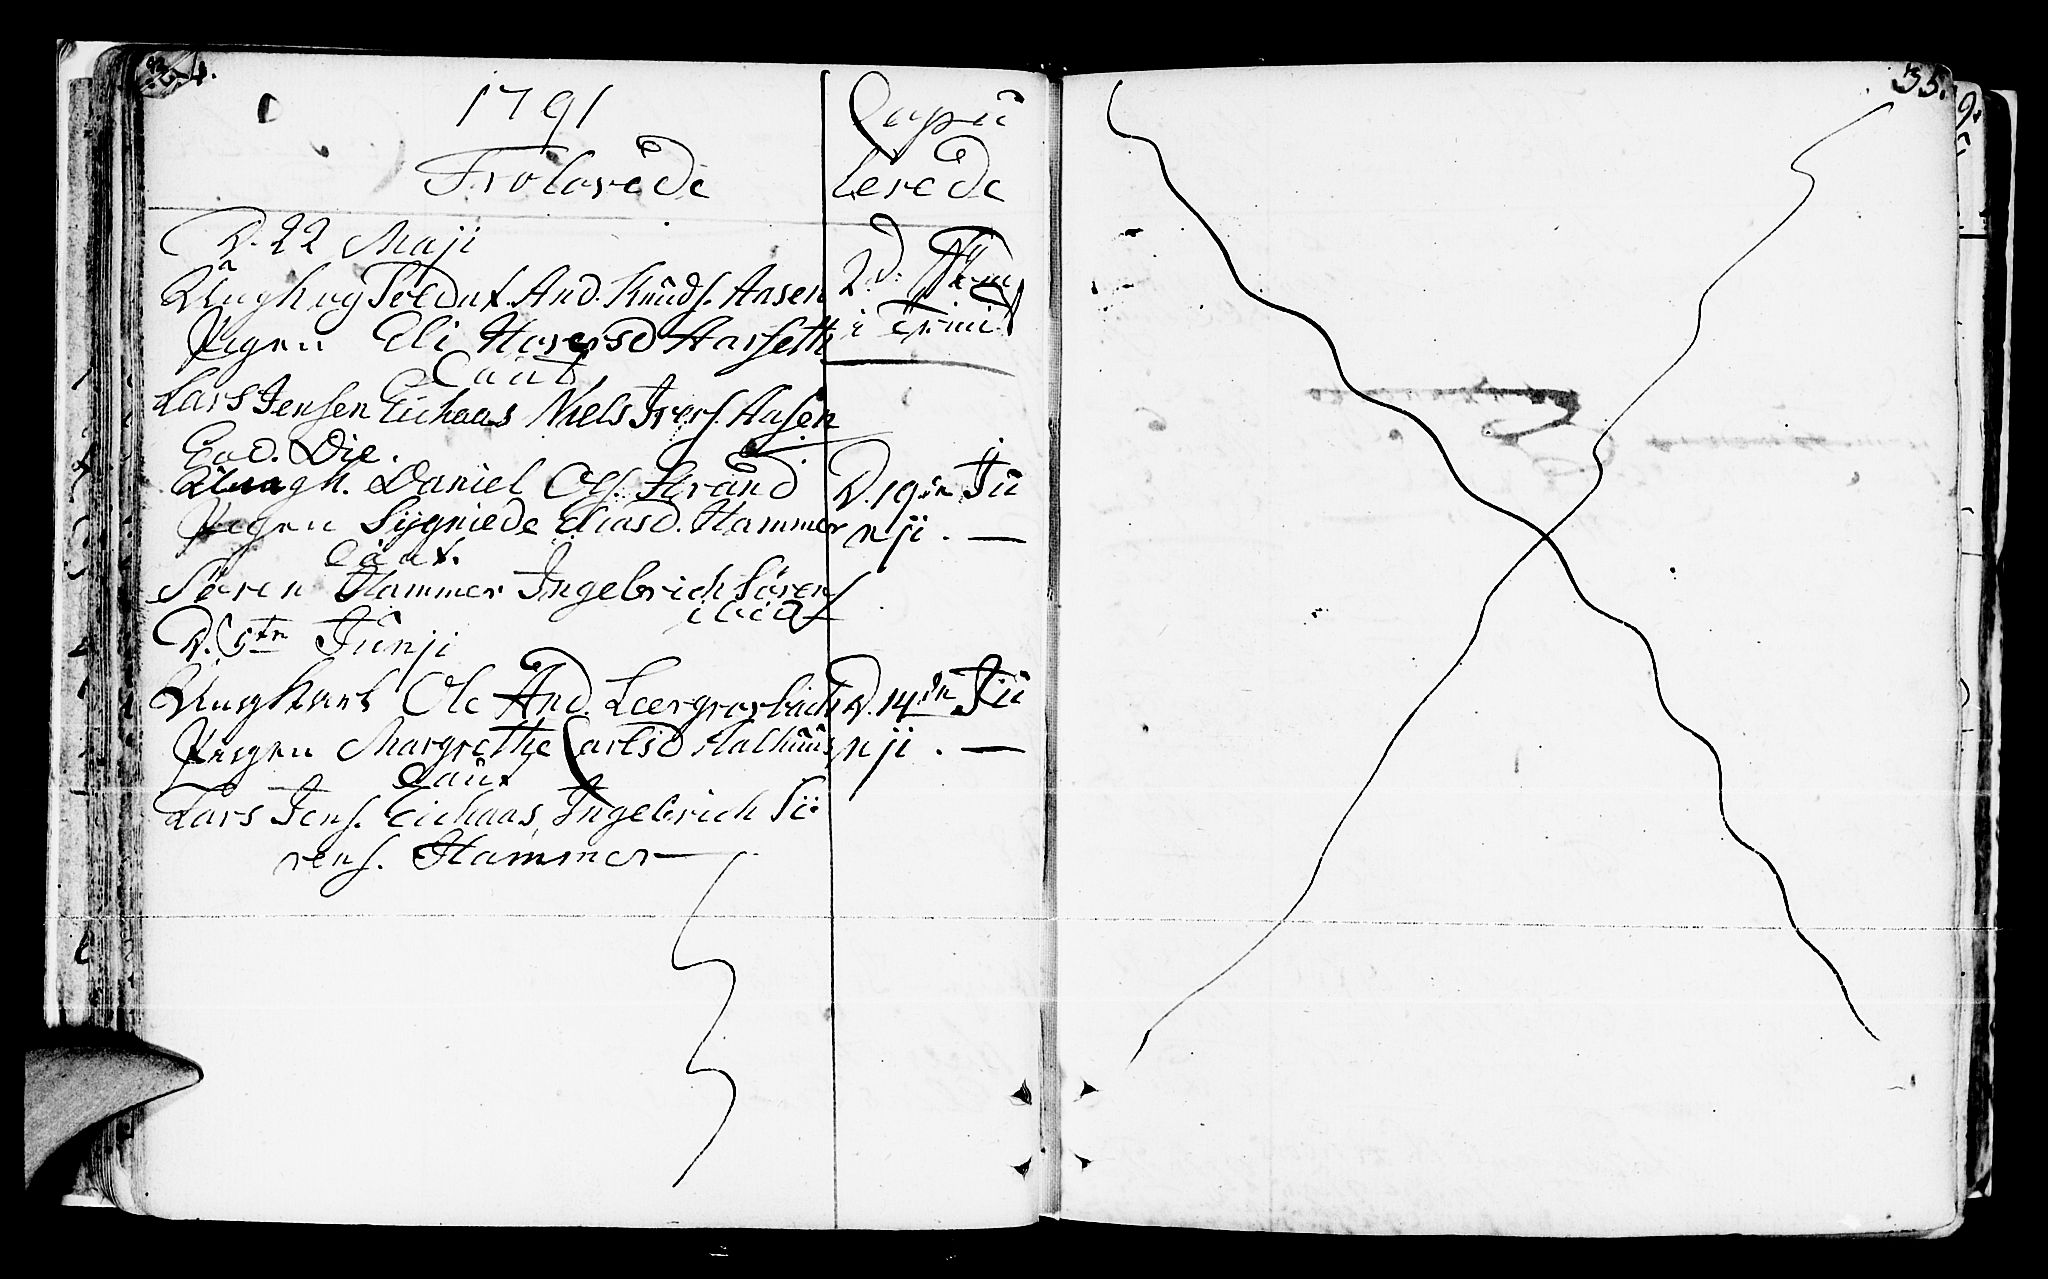 34.
1791
Trolovede
Copu
lerede
D. 22 Maji
Ungkarl Soldat And. Knuds. Aasen
Pigen Eli Iversd Aarseth
Caut
Lars Jensen Eichaas Niels Ivers. Aasen
2d.
i Trinit
Eod. Die.
Ungk. Daniel Ols. Strand
Pigen Sygniede Eliasd. Hammer
Caut.
Sören Hammer Ingebrich Sören
ibid
D. 19de Ju
nji. —
D. 5te Junji
Ungkarl Ole And. Leergrovbich
Pigen Margrethe Carlsd Aalhuus
Caut
Lars Jens. Eichaas, Ingebrich Sö
rens. Hammer
D. 14de Ju
nji. —
35.